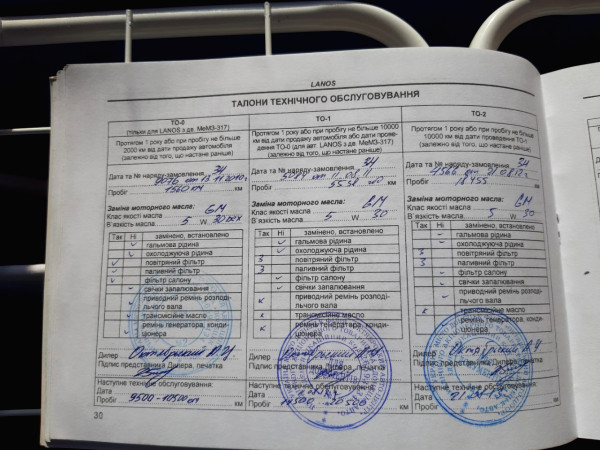 LANOS
ТАЛОНИ ТЕХНІЧНОГО ОБСЛУГОВУВАННЯ
ТО-0
(тільки для LANOS з дв. МеМЗ-317)
Протягом 1 року або при пробігу не більше
2000 км від дати продажу автомобіля
(залежно від того, що настане раніше)
Дата та № наряду-замовлення 34
Пробіг 1560 км км
Заміна моторного масла: GM
Клас якості масла
В'язкість масла 5 W 30
Так Ні замінено, встановлено
гальмова рідина
охолоджуюча рідина
повітряний фільтр
паливний фільтр
фільтр салону
свічки запалювання
приводний ремінь розподі-
льчого вала
трансмісійне масло
ремінь генератора, конди-
ціонера
Дилер
Підпис представника Дилера, печатка
Наступне технічне обслуговування:
Дата
Пробіг 9500-10500 км км
30
ТО-1
Протягом 1 року або при пробігу не більше 10000
км від дати продажу автомобіля або дати прове-
дення ТО-0 (для авт. LANOS з дв. МеМЗ-317)
(залежно від того, що настане раніше)
Дата та № наряду-замовлення 34
Пробіг км
Заміна моторного масла: GM
Клас якості масла
В'язкість масла 5 W 30
Так Ні замінено, встановлено
гальмова рідина
охолоджуюча рідина
З повітряний фільтр
З паливний фільтр
фільтр салону
свічки запалювання
к приводний ремінь розподі-
льчого вала
к трансмісійне масло
к ремінь генератора, конди-
ціонера
Дилер
Підпис представника Дилера, печатка
Наступне технічне обслуговування:
Дата
Пробіг 20500 км
ТО-2
Протягом 1 року або при пробігу не більше
10000 км від дати проведення ТО-1
(залежно від того, що настане раніше)
Дата та № наряду-замовлення 34
Пробіг 18455 км
Заміна моторного масла: GM
Клас якості масла
В'язкість масла 5 W 30
Так Ні замінено, встановлено
гальмова рідина
охолоджуюча рідина
З повітряний фільтр
З паливний фільтр
фільтр салону
свічки запалювання
приводний ремінь розподі-
льчого вала
к трансмісійне масло
ремінь генератора, конди-
ціонера
Дилер
Підпис представника Дилера, печатка
Наступне технічне обслуговування:
Дата
Пробіг км